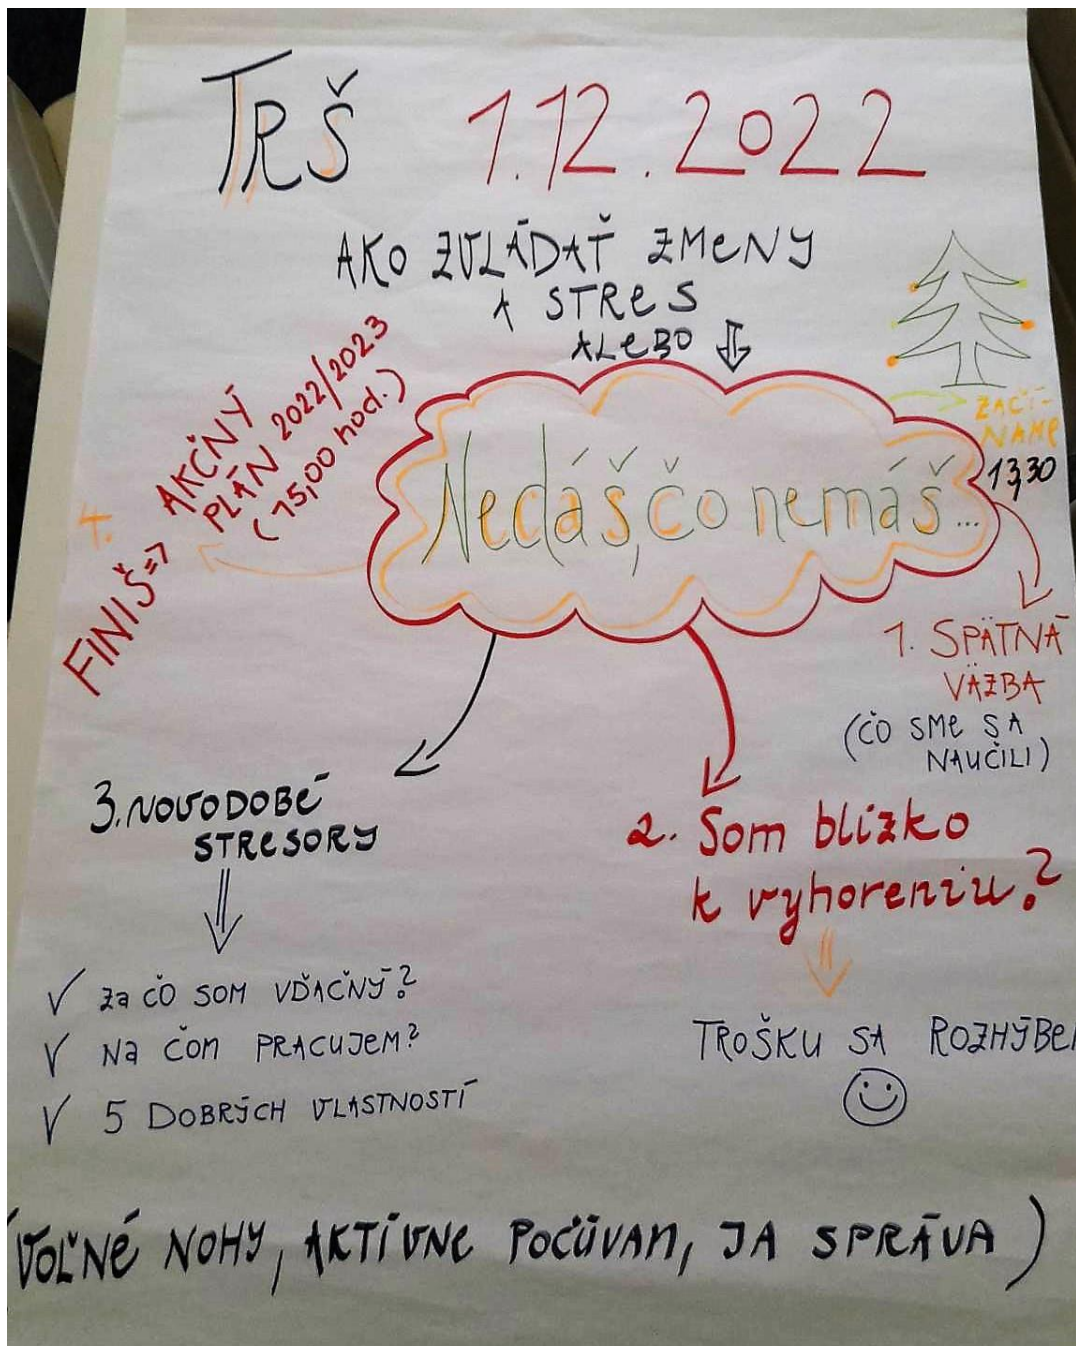 TRŠ 1.12.2022
AKO ZVLÁDAŤ ZMENY
A STRES
ALEBO
ZAČÍ-
NAME
13,30
Nedáš, čo nemáš...
1. SPÄTNÁ
VÄZBA
(ČO SME SA
NAUČILI)
2. Som blízko
k vyhoreniu?
TROŠKU SA ROZHÝBE
3. NOVODOBÉ
STRESORY
✓ Za ČO SOM VĎAČNÝ?
✓ Na ČOM PRACUJEM?
✓ 5 DOBRÝCH VLASTNOSTÍ
4.
FINIŠ => AKČNÝ
PLÁN 2022/2023
(15,00 hod.)
(VOĽNÉ NOHY, AKTÍVNE POČÚVAM, JA SPRÁVA)